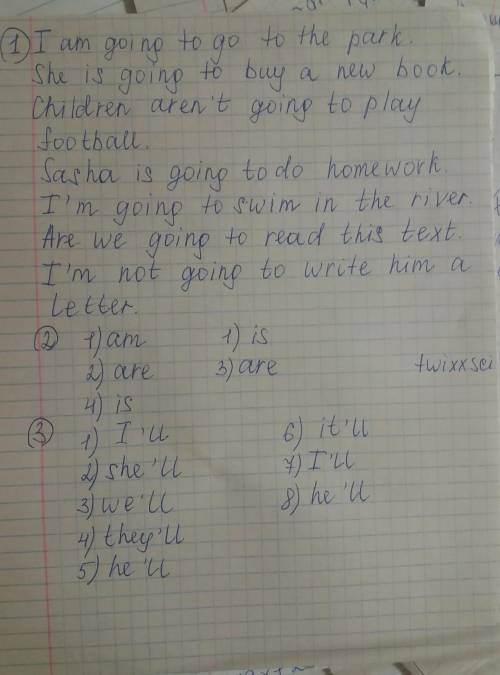 1 I am going to go to the park.
She is going to buy a new book.
Children aren't going to play
football.
Sasha is going to do homework.
I'm going to swim in the river.
Are we going to read this text.
I'm not going to write him a
letter.
2 1) am 1) is
2) are 3) are twixxsci
4) is
3 1) I'll 6) it'll
2) she'll 7) I'll
3) we'll 8) he'll
4) they'll
5) he'll